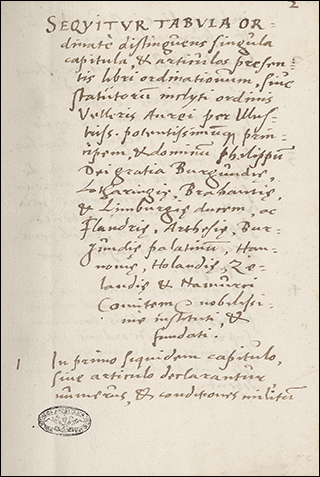 2
SEQVITVR TABVLA OR-
dinatè distinguens singula
capitula, & articulos præsen-
tis libri ordinationum, siue
statutorum inclyti ordinis
Velleris Aurei per Illus-
triss. potentissimumq̃ prin-
cipem, & dominũ Philippũ
Dei gratia Burgundiæ,
Lotharingiæ, Brabantiæ,
& Limburgiæ ducem, ac
Flandriæ, Arthesiæ, Bur-
gundiæ palatinũ, Han-
noniæ, Holandiæ, Ze-
landiæ & Namurci
Comitem nobilisi-
me instituti, &
fundati.
1 In primo siquidem capitulo,
siue articulo declarantur
numerus, & conditiones militũ